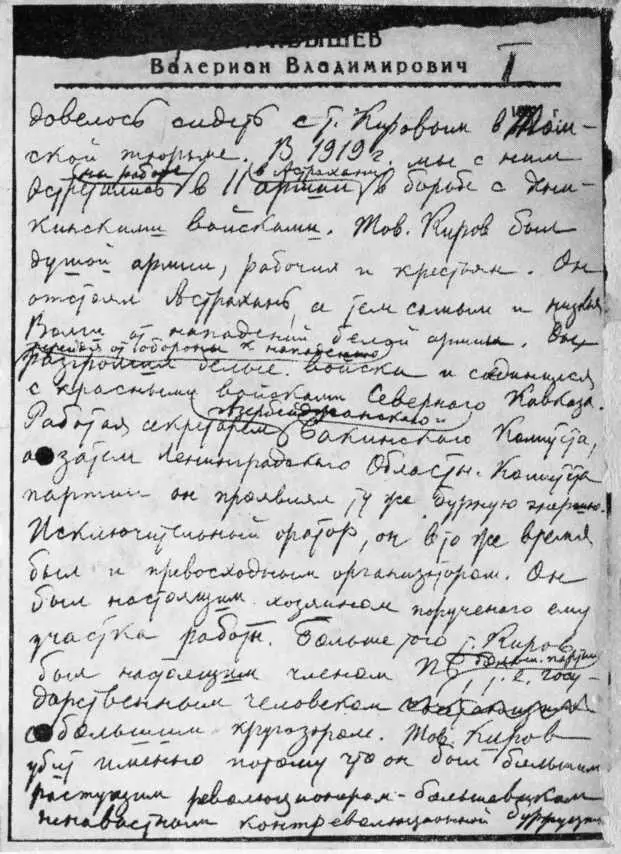 КУЙБЫШЕВ
Валериан Владимирович I
довелось сидеть с т. Кировым в Том-
ской тюрьме. В 1919 г. мы с ним
на работе в Астрахани
встретились в 11 армии в борьбе с Дени-
кинскими войсками. Тов. Киров был
душой армии, рабочих и крестьян. Он
отстоял Астрахань, а тем самым и низовья
Волги от нападений белой армии.
перейдя от обороны к нападению
разгромил белые войска и соединился
с красными войсками Северного Кавказа.
Азербайджанского и
Работая секретарем Бакинского Комитета,
а затем Ленинградского Областн. Комитета
партии он проявлял ту же бурную энергию.
Исключительный оратор, он в то же время
был и превосходным организатором. Он
был настоящим хозяином порученного ему
участка работы. Больше того т. Киров
больш. партии
был настоящим членом т.е. госу-
дарственным человеком
с большим кругозором. Тов. Киров
убит именно потому что он был большим
растущим революционером-большевиком
ненавистным контрреволюционной буржуазии